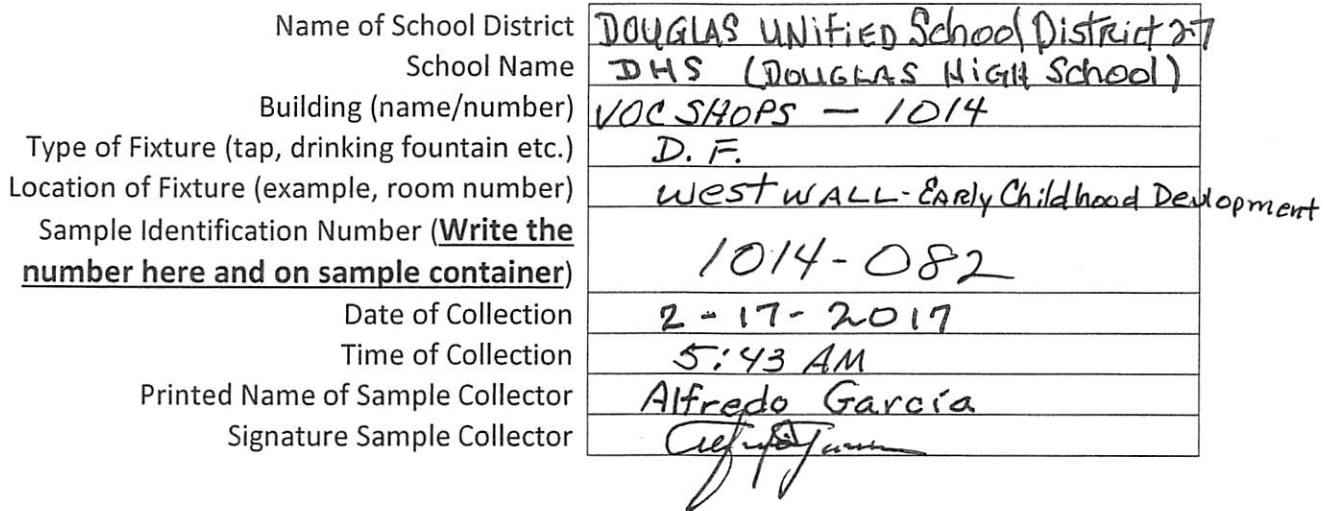 Name of School District DOUGLAS UNiFiED School District 27
School Name DHS (DOUGLAS HiGH School)
Building (name/number) VOC SHOPS — 1014
Type of Fixture (tap, drinking fountain etc.) D. F.
Location of Fixture (example, room number) West WALL - EARly Childhood Devlopment
Sample Identification Number (Write the
number here and on sample container) 1014-082
Date of Collection 2-17-2017
Time of Collection 5:43 AM
Printed Name of Sample Collector Alfredo García
Signature Sample Collector